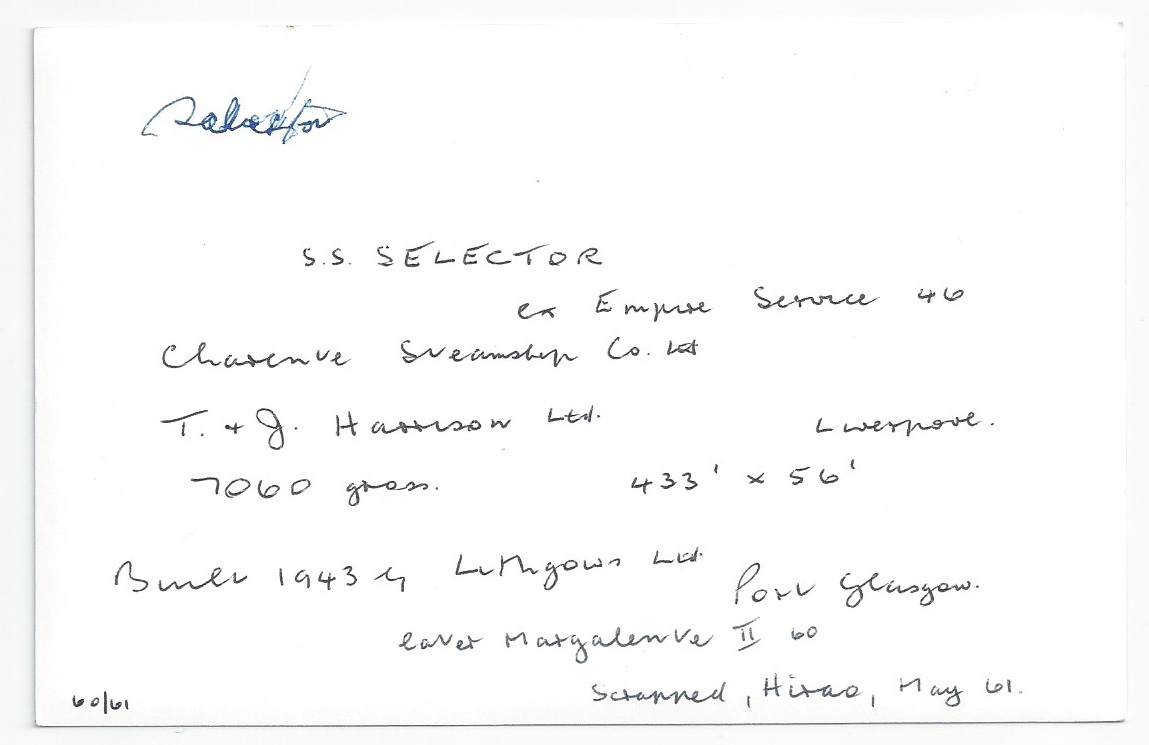 Selector
S.S. SELECTOR
ex Empire Service 46
Charente Steamship Co. Ltd
T. + J. Harrison Ltd. Liverpool.
7060 gross. 433' x 56'
Built 1943 by Lithgows Ltd. Port Glasgow.
later Margalente II 60
Scrapped, Hirao, May 61.
60/61